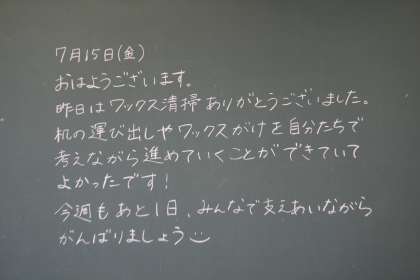 7月15日(金)
おはようございます。
昨日はワックス清掃ありがとうございました。
机の運び出しやワックスがけを自分たちで
考えながら進めていくことができていて
よかったです!
今週もあと1日、みんなで支えあいながら
がんばりましょう